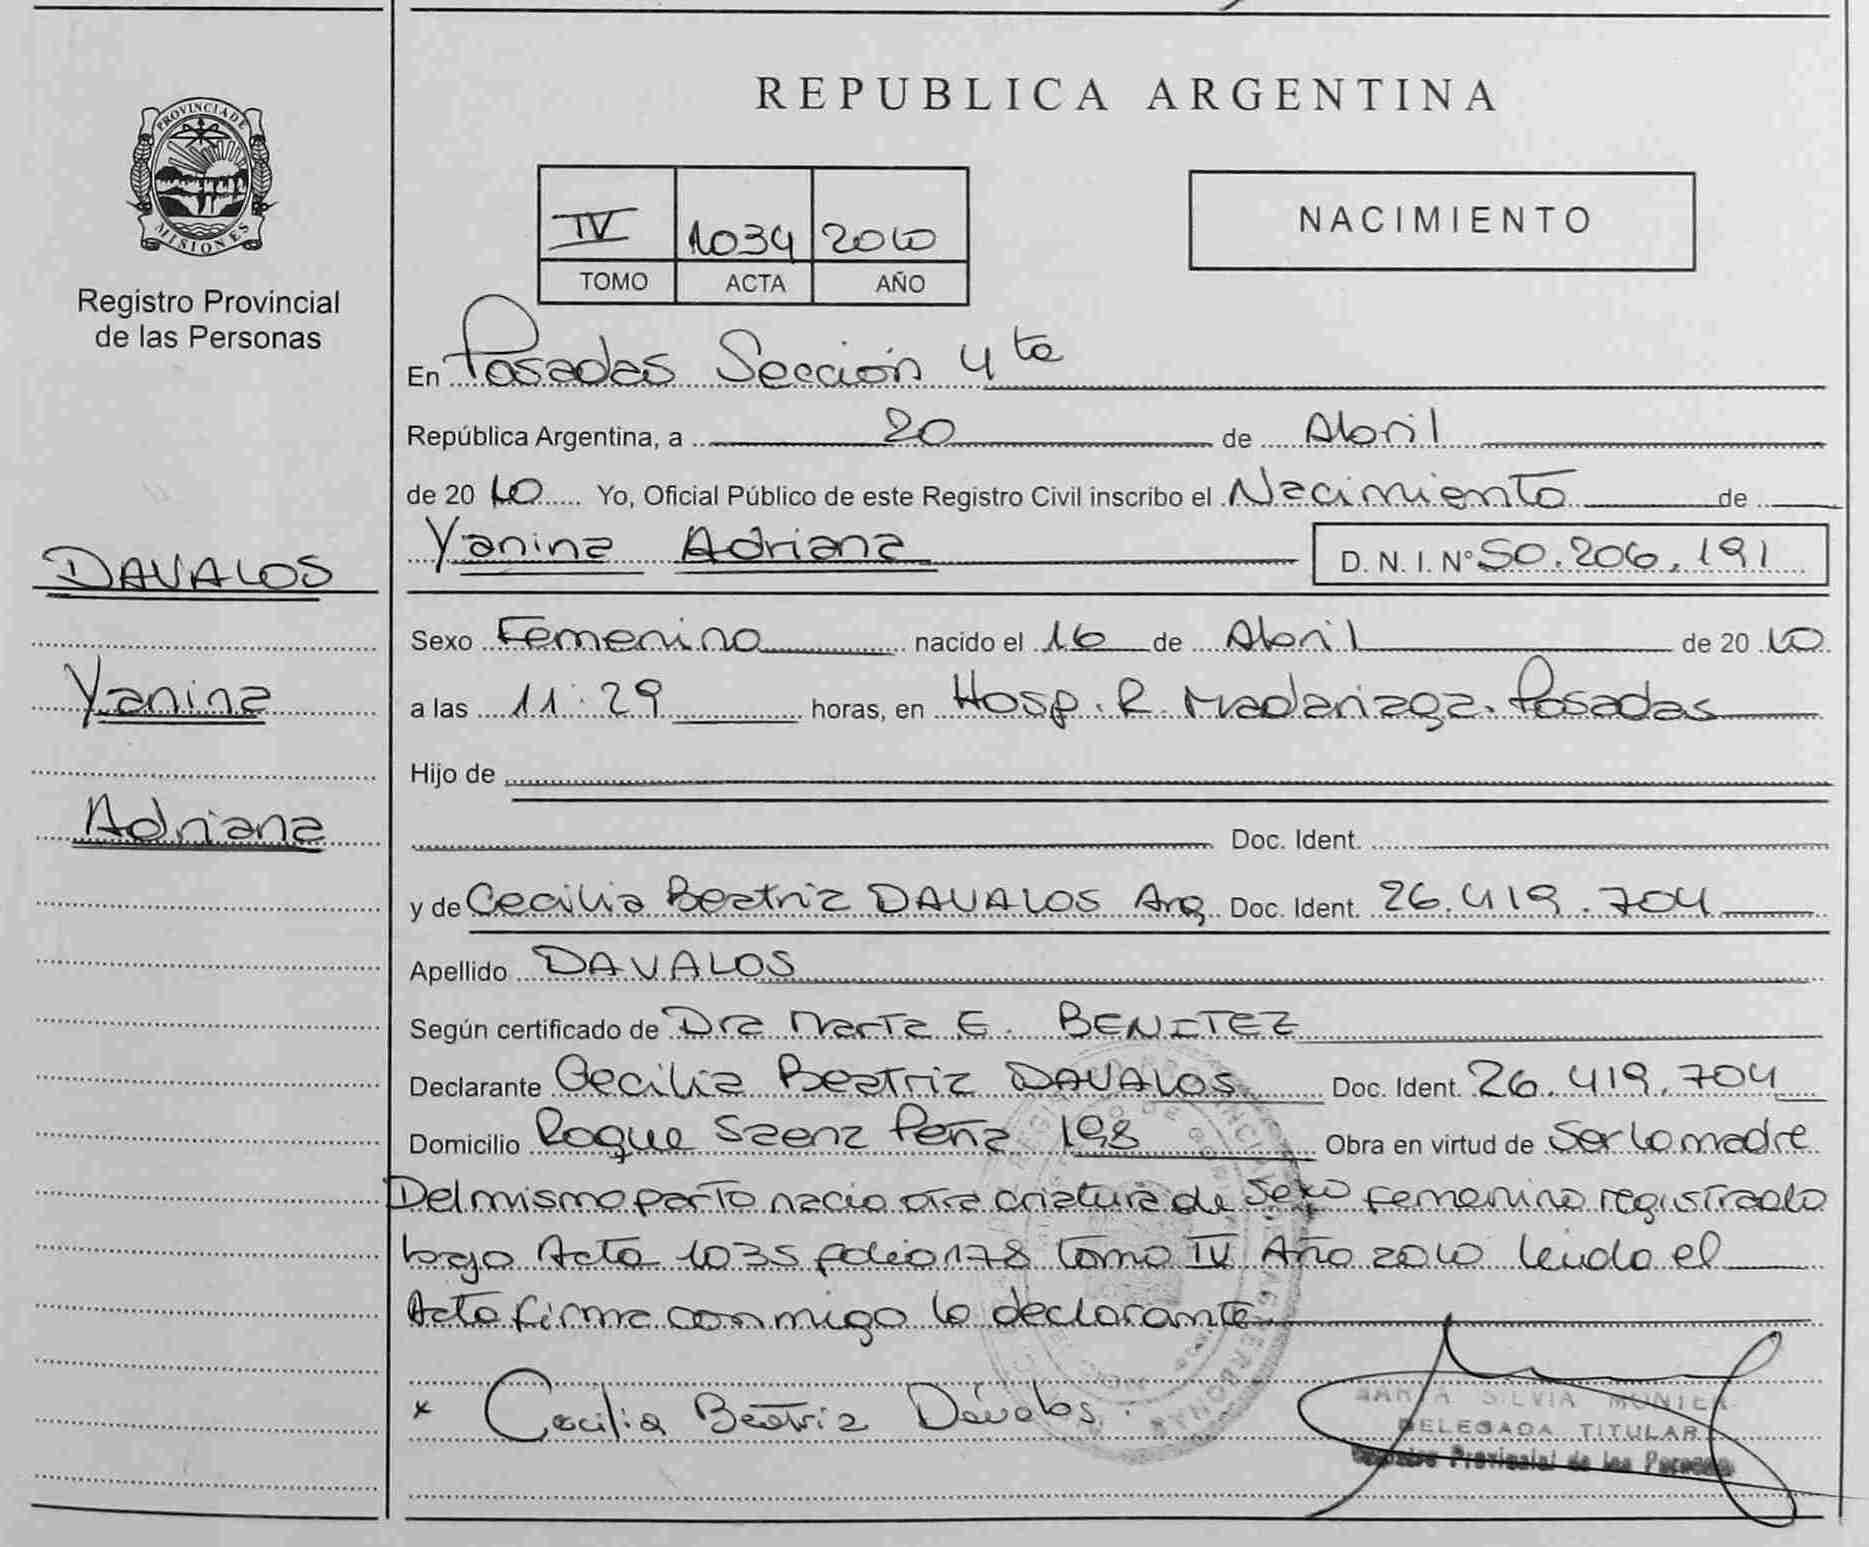 PROVINCIA DE
MISIONES
Registro Provincial
de las Personas
DAVALOS
Yanina
Adriana
REPUBLICA ARGENTINA
IV 1034 2010
TOMO ACTA AÑO
NACIMIENTO
En Posadas Sección 4ta
República Argentina, a 20 de Abril
de 2010 Yo, Oficial Público de este Registro Civil inscribo el Nacimiento de
Yanina Adriana D. N. I. Nº 50.206.191
Sexo Femenino nacido el 16 de Abril de 2010
a las 11:29 horas, en Hosp. R. Madariaga. Posadas
Hijo de
Doc. Ident.
y de Cecilia Beatriz DAVALOS Arg. Doc. Ident. 26.419.704
Apellido DAVALOS
Según certificado de Dra Marta E. BENITEZ
Declarante Cecilia Beatriz DAVALOS Doc. Ident. 26.419.704
Domicilio Roque Saenz Peña 198 Obra en virtud de Ser la madre
Del mismo parto nacio otra criatura de sexo femenino registrado
bajo Acta 1035 folio 178 tomo IV Año 2010 leido el
Acta firma conmigo la declarante
x Cecilia Beatriz Dávalos.
SILVIA
DELEGADA TITULAR
Registro Provincial de las Personas